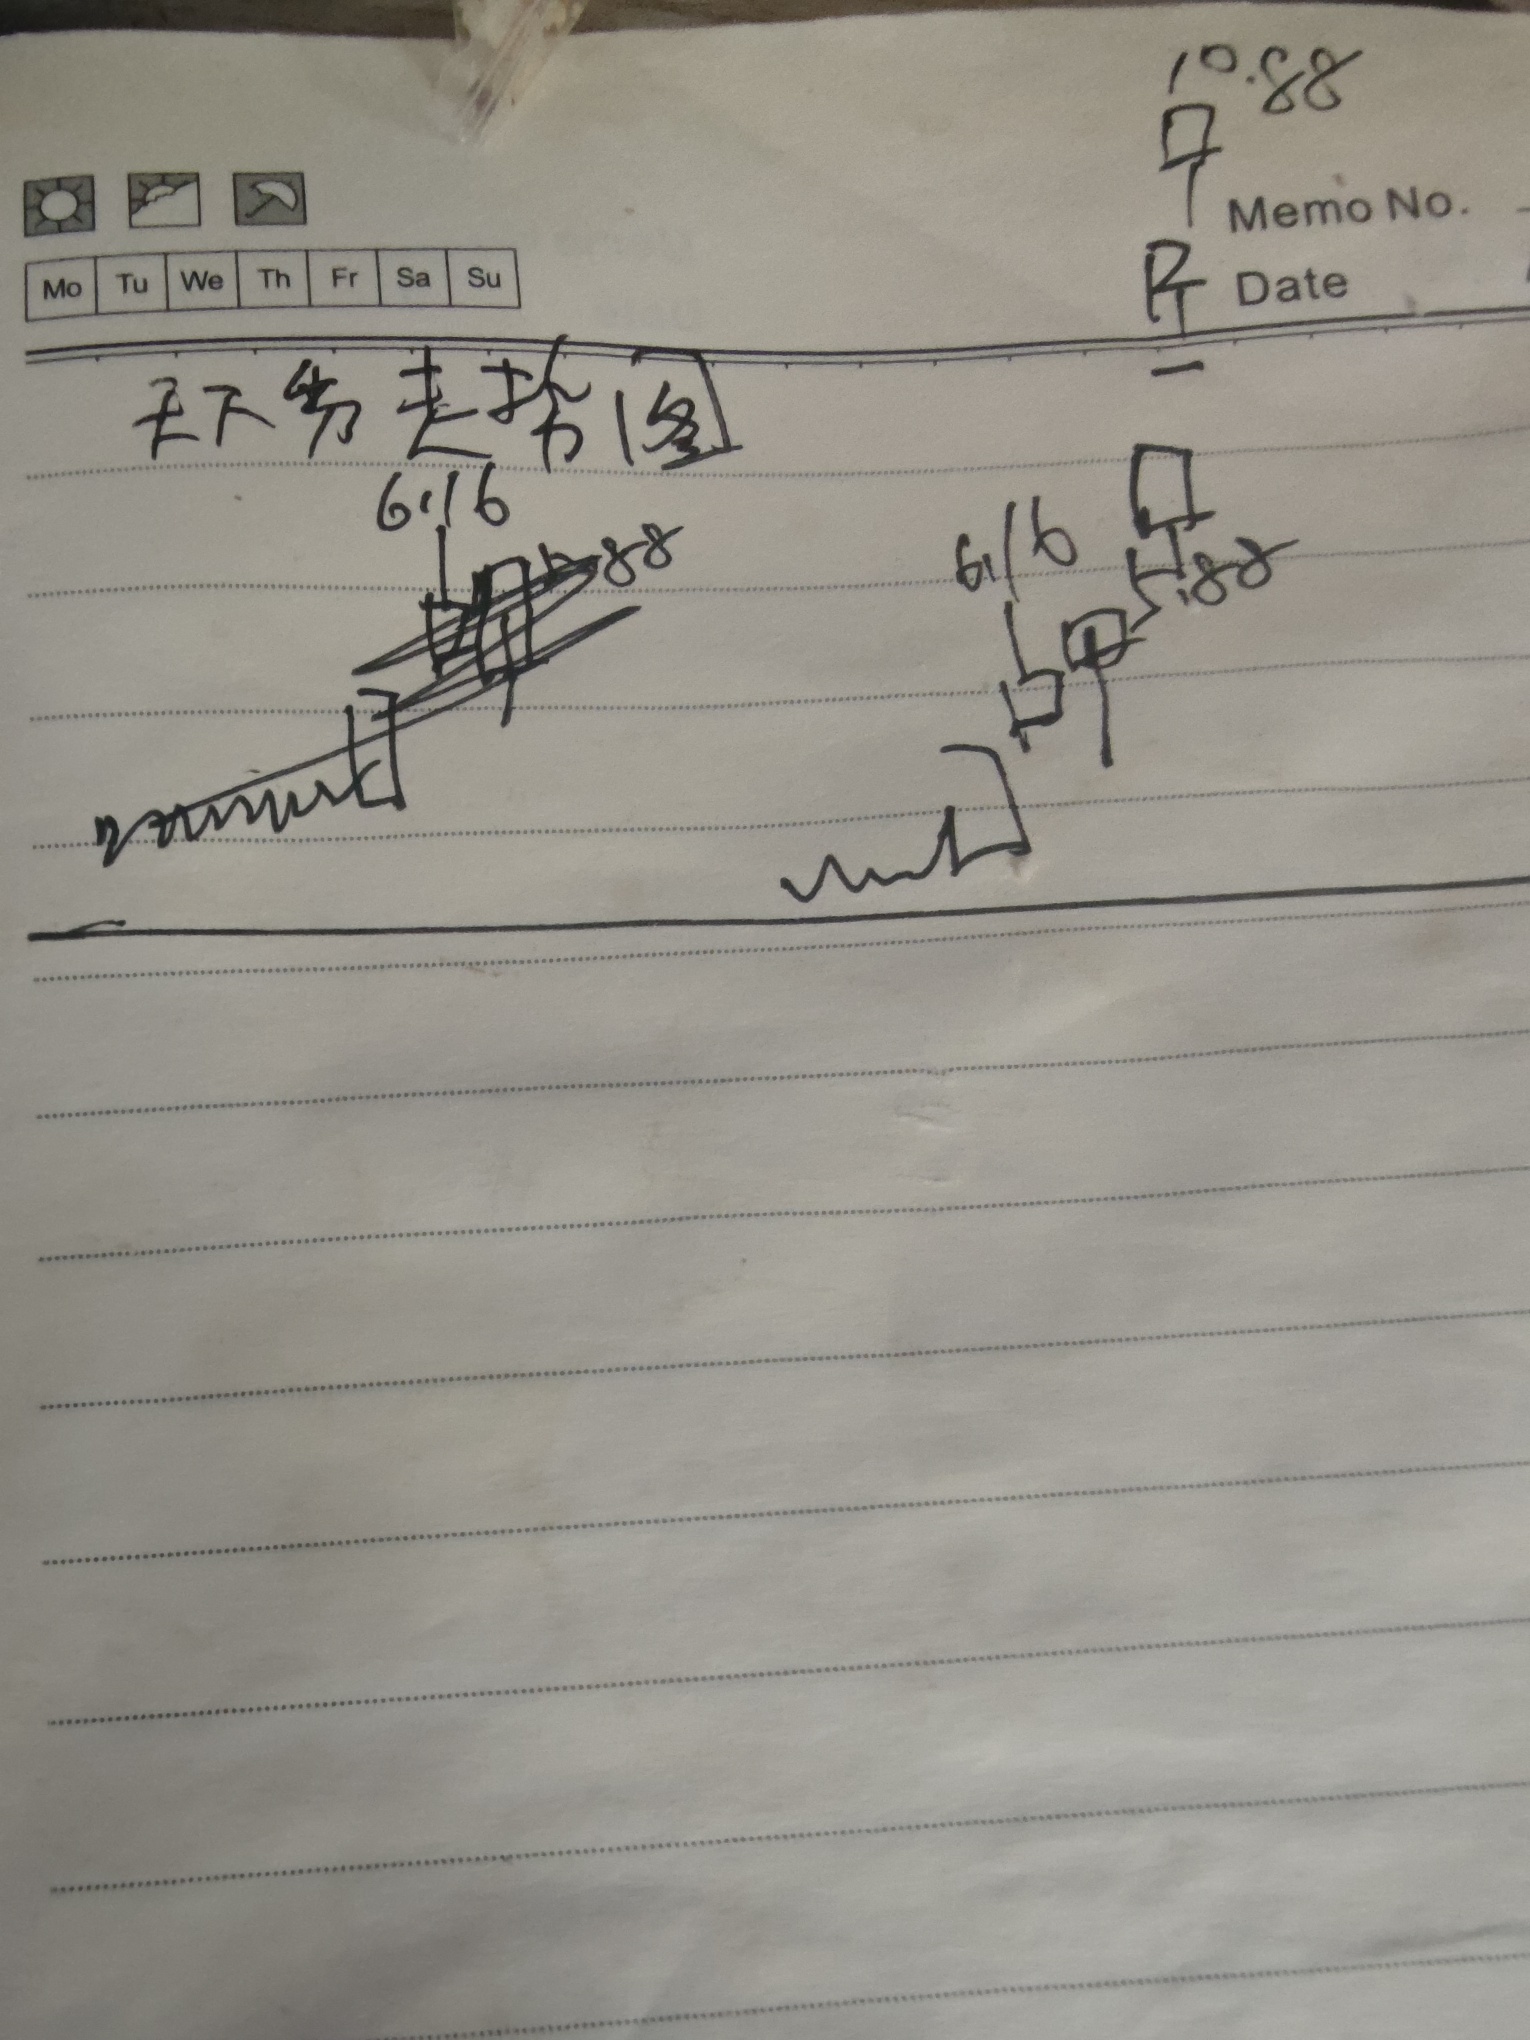 10.88
Memo No.
Date
Mo Tu We Th Fr Sa Su
天下势走 图
6.16
.88
6.16
.88